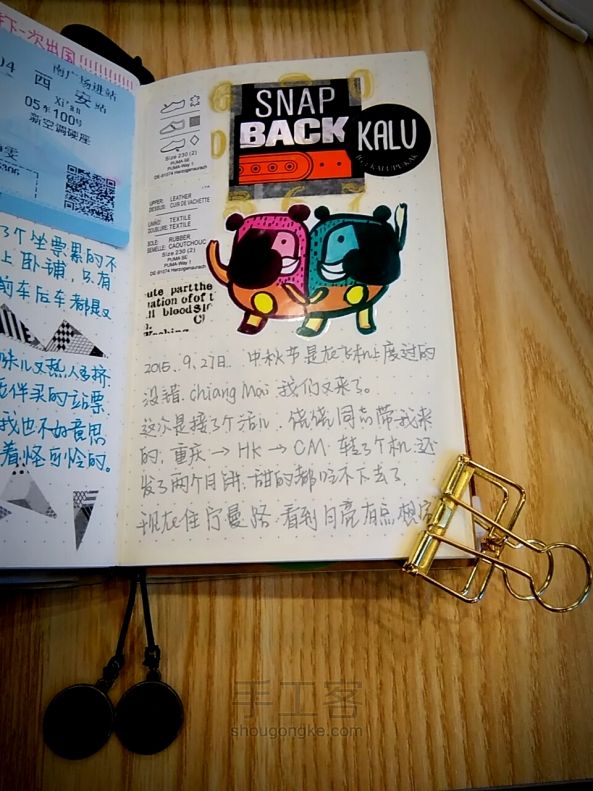 下一次出国!!!!!!!!!!
南广场进站
04 西安站
Xi'an
05车100号
新空调硬座
雯
了个坐票累的不
上卧铺,只有
前车后车都是又
味儿又熱人多挤
我也不好意思
着怪可怜的。
Size 230 (2)
PUMA SE
PUMA-Way 1
DE-91074 Herzogenaurach
UPPER: LEATHER
DESSUS: CUIR DE VACHETTE
LINING: TEXTILE
DOUBLURE: TEXTILE
SOLE: RUBBER
SEMELLE: CAOUTCHOUC
Size 230 (2)
PUMA SE
PUMA-Way 1
DE-91074 Herzogenaurach
ute partthe
nation ofof t
ll bloodsio
SNAP
BACK
KALU
2015.9.27日. 中秋节是在飞机上度过的
没错. Chiang Mai 我们又来了。
这次是接了个活儿. 饶饶同志带我来
的. 重庆→HK→CM. 转了个机. 还
发了两个月饼. 甜的都吃不下去了.
现在住宁曼路. 看到月亮有点想家
手工客
shougongke.com